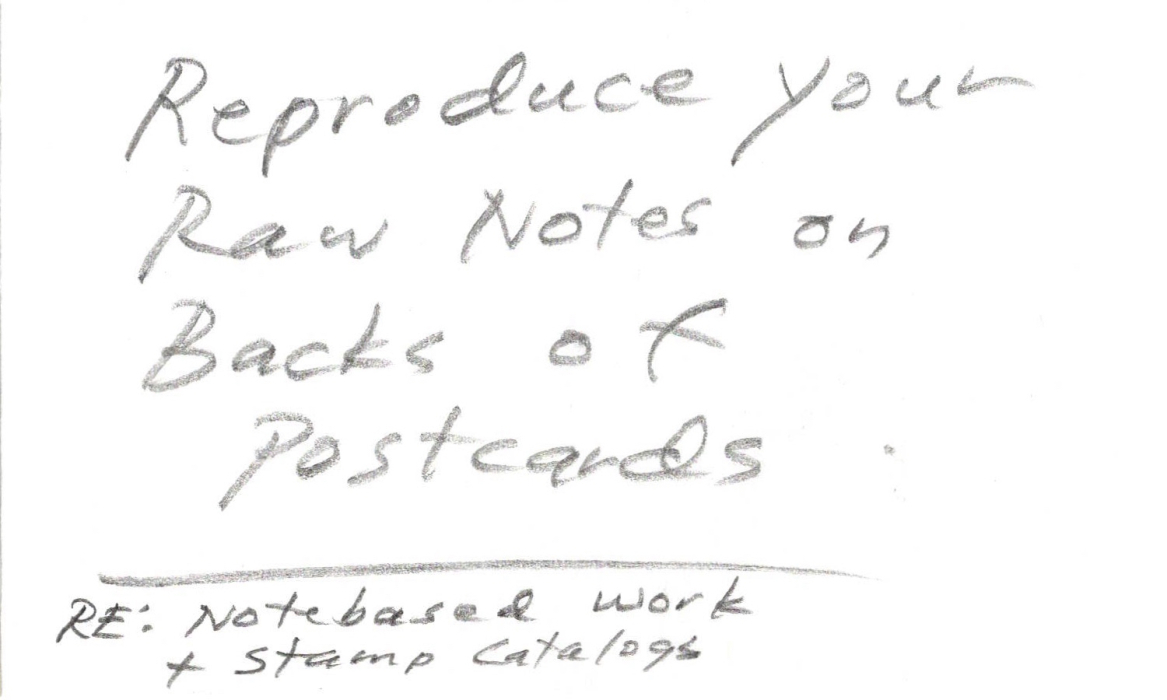 Reproduce your
Raw Notes on
Backs of
Postcards
RE: Notebased work
+ stamp catalogs